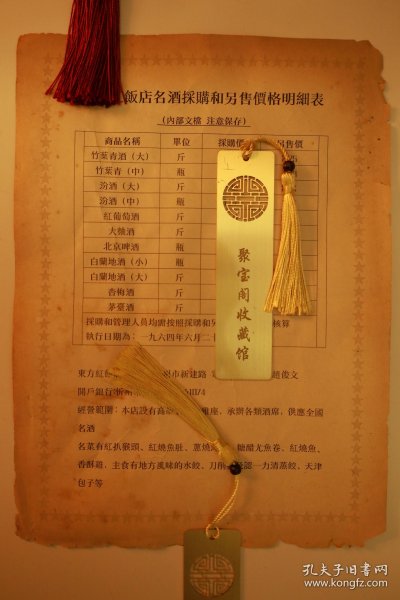 飯店名酒採購和另售價格明細表
(內部文檔 注意保存)
商品名稱 單位 採購價 另售價
竹葉青酒（大） 斤
竹葉青（中） 瓶
汾酒（大） 斤
汾酒（中） 瓶
紅葡萄酒 斤
大麯酒 斤
北京啤酒 瓶
白蘭地酒（小） 瓶
白蘭地酒（大） 斤
杏梅酒 斤
茅臺酒 斤
採購和管理人員均需按照採購和另 核算
執行日期為：一九六四年六月二
東方紅 市新建路 趙俊文
開戶銀行 1174
經營範圍：本店設有高 雅座，承辦各類酒席，供應全國
名酒
名菜有紅扒猴頭、紅燒魚肚、蔥燒 糖醋尤魚卷、紅燒魚、
香酥雞，主食有地方風味的水餃、刀削 一力清蒸餃、天津
包子等
聚宝阁收藏馆
孔夫子旧书网
www.kongfz.com